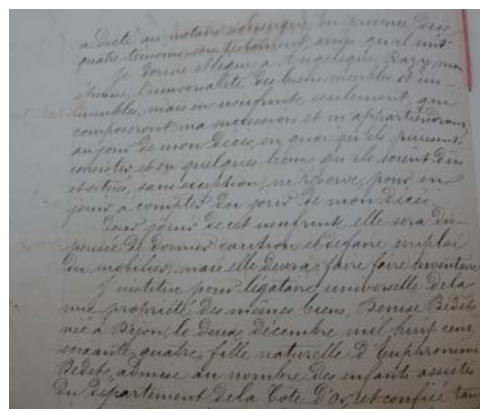 a dicté au notaire soussigné, en présence des
quatre témoins son testament, ainsi qu'il suit.
Je donne et lègue à Angélique Bazy, mon
épouse, l'universalité des biens meubles et im-
meubles, mais en usufruit seulement, qui
composeront ma succession et m'appartiendront
au jour de mon décès, en quoi qu'ils puissent
consister, et en quelques lieux qu'ils soient dûs
et situés, sans exception, ni réserve, pour en
jouir à compter du jour de mon décès.
Pour jouir de cet usufruit elle sera dis-
pensée de donner caution et de faire emploi
du mobilier, mais elle devra faire faire inventaire
J'institue pour légataire universelle de la
nue propriété des mêmes biens, Denise Bédets
née à Dijon, le deux décembre mil huit cent
soixante quatre, fille naturelle d'Euphronine
Bédets, admise au nombre des enfants assistés
du département de la Côte d'Or, et confiée tant